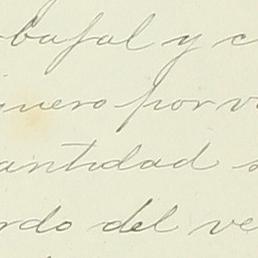 bajal y c
inero por v
antidad s
rdo del ve